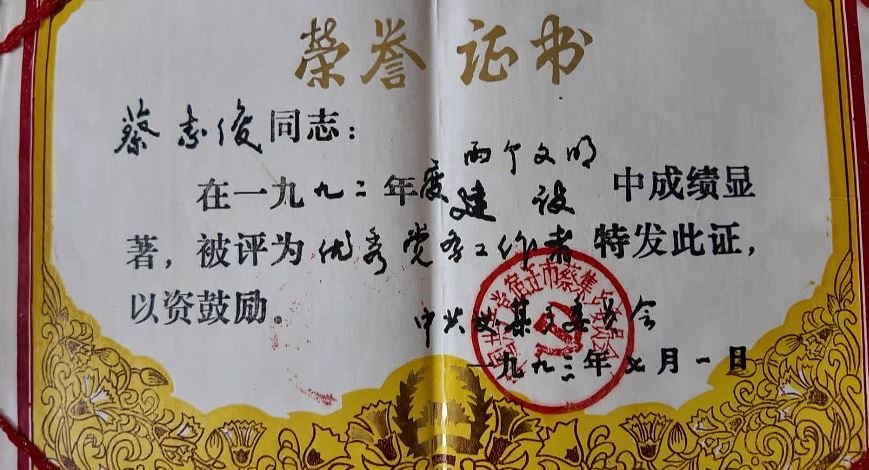 荣誉证书
蔡志俊同志：
两个文明
在一九九二年度建设中成绩显
著，被评为优秀党务工作者特发此证，
以资鼓励。
中共蔡集乡委员会
一九九二年七月一日